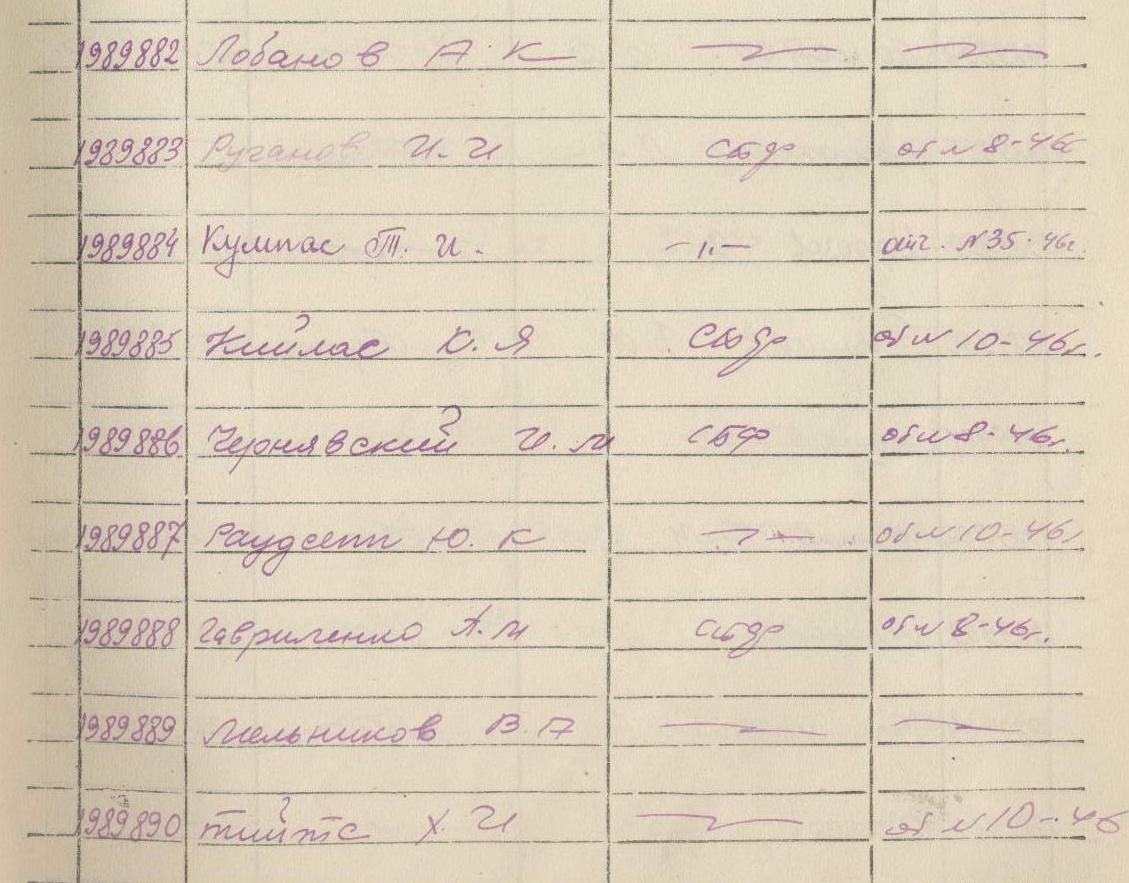 1989882 Лобанов А К
1989883 Руганов И. И СБФ от N 8-46г
1989884 Кумпас Т. И. —"— отч. N 35-46г.
1989885 Кийлас К. Я СБФ от N 10-46г.
1989886 Чернявский И. М СБФ от N 8-46г.
1989887 Раудсепп Ю. К —"— от N 10-46г
1989888 Гавриленко А. М СБФ от N 8-46г.
1989889 Мельников В. А
1989890 Тийтс Х. И от N 10-46